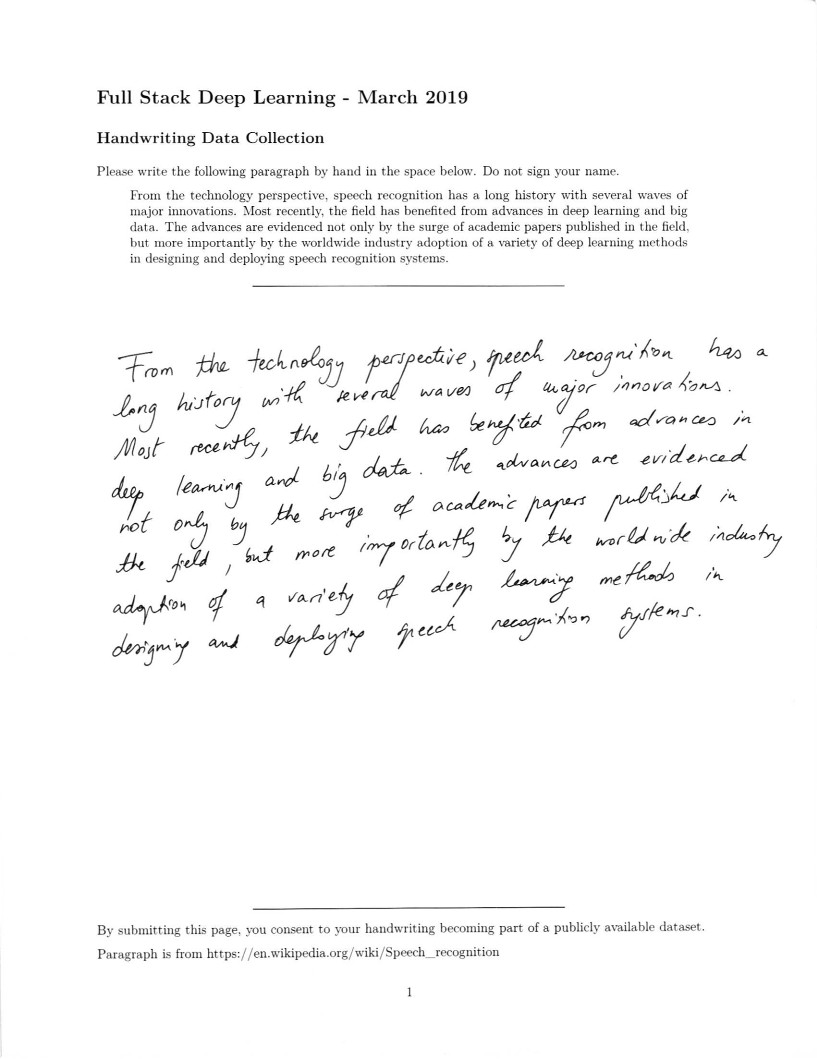 Full Stack Deep Learning - March 2019
Handwriting Data Collection
Please write the following paragraph by hand in the space below. Do not sign your name.
From the technology perspective, speech recognition has a long history with several waves of
major innovations. Most recently, the field has benefited from advances in deep learning and big
data. The advances are evidenced not only by the surge of academic papers published in the field,
but more importantly by the worldwide industry adoption of a variety of deep learning methods
in designing and deploying speech recognition systems.
From the technology perspective, speech recognition has a
long history with several waves of major innovations.
Most recently, the field has benefited from advances in
deep learning and big data. The advances are evidenced
not only by the surge of academic papers published in
the field, but more importantly by the worldwide industry
adoption of a variety of deep learning methods in
designing and deploying speech recognition systems.
By submitting this page, you consent to your handwriting becoming part of a publicly available dataset.
Paragraph is from https://en.wikipedia.org/wiki/Speech_recognition
1